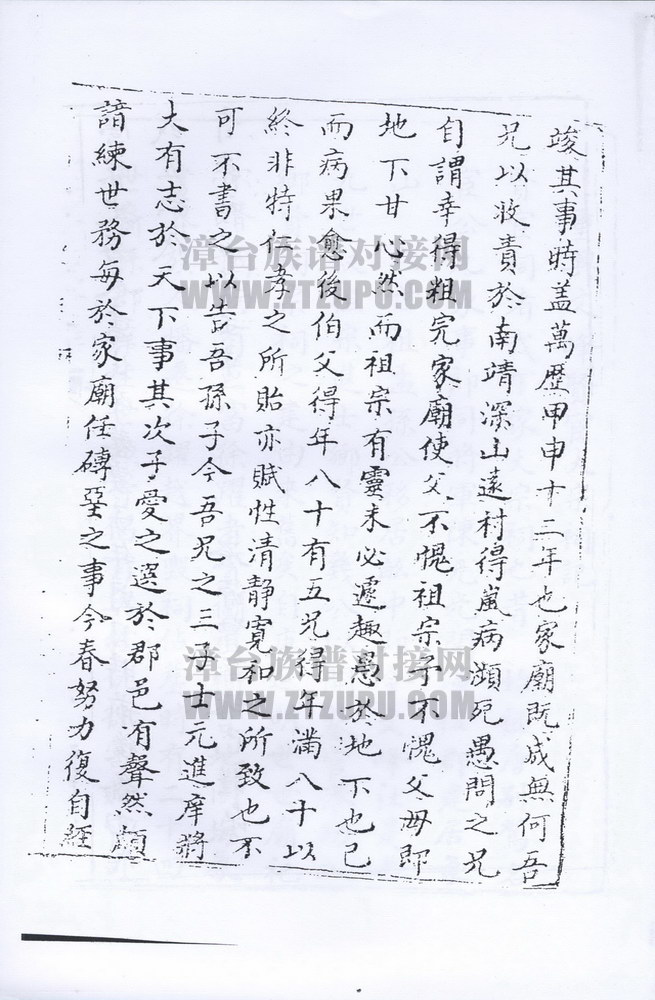 竣其事時盖萬歷甲申十二年也家廟既成無何吾
兄以收責於南靖深山遠村得嵐病瀕死愚問之兄
自謂幸得粗完家廟使父不愧祖宗子不愧父母即
地下甘心然而祖宗有靈未必遽趣愚於地下也已
而病果愈後伯父得年八十有五兄得年滿八十以
終非特仁孝之所貽亦賦性清靜寬和之所致也不
可不書之以告吾孫子今吾兄之三子士元進庠將
大有志於天下事其次子愛之選於郡邑有聲然頗
諳練世務每於家廟任磚堊之事今春努力復自經
漳台族谱对接网
WWW.ZTZUPU.COM
漳台族谱对接网
WWW.ZTZUPU.COM